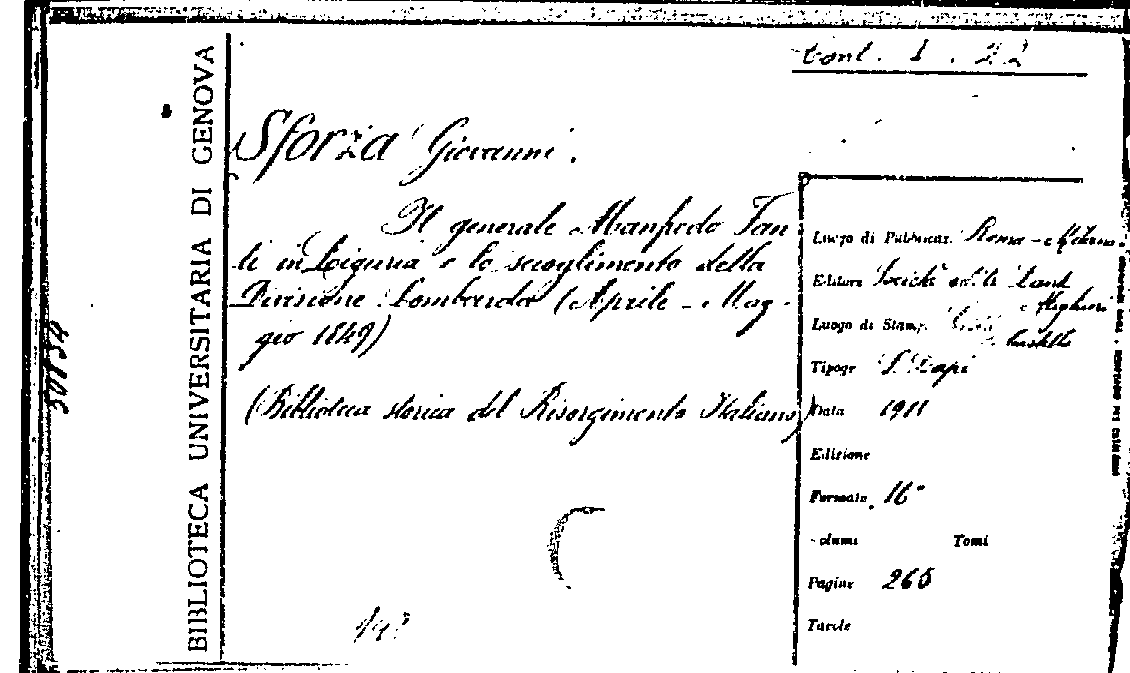 Cont. 1. 22
BIBLIOTECA UNIVERSITARIA DI GENOVA
Sforza Giovanni.
Il generale Manfredo Fan
ti in Liguria e lo scioglimento della
Divisione Lombarda (Aprile - Mag-
gio 1849)
(Biblioteca storica del Risorgimento Italiano)
Luogo di Pubblicaz. Roma - Milano
Editore Società edit. Dante
Alighieri
Luogo di Stamp. Città
Castello
Tipogr S. Lapi
Data 1911
Edizione
Formato 16°
olumi Tomi
Pagine 265
Tavole